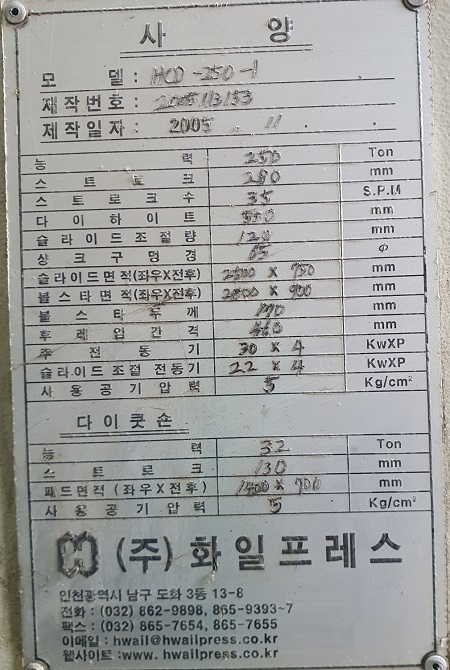 사 양
모 델 : HCD-250-1
제작번호 :
제작일자 : 2005. 11
능 력 250 Ton
스 트 로 크 280 mm
스 트 로 크 수 35 S.P.M
다 이 하 이 트 550 mm
슬 라 이 드 조 절 량 120 mm
샹 크 구 멍 경 65 Φ
슬라이드면적(좌우X전후) X 750 mm
볼스타면적(좌우X전후) X 900 mm
볼 스 타 두 께 mm
후 레 임 간 격 mm
주 전 동 기 30 X 4 KwXP
슬라이드 조절 전동기 2.2 X 4 KwXP
사 용 공 기 압 력 5 Kg/cm²
다 이 쿳 숀
능 력 32 Ton
스 트 로 크 130 mm
패드면적 (좌우X전후) 1400 X 700 mm
사 용 공 기 압 력 5 Kg/cm²
(주) 화일프레스
인천광역시 남구 도화 3동 13-8
전화 : (032) 862-9898, 865-9393~7
팩스 : (032) 865-7654, 865-7655
이메일 : hwail@hwailpress.co.kr
웹사이트 :www. hwailpress.co.kr